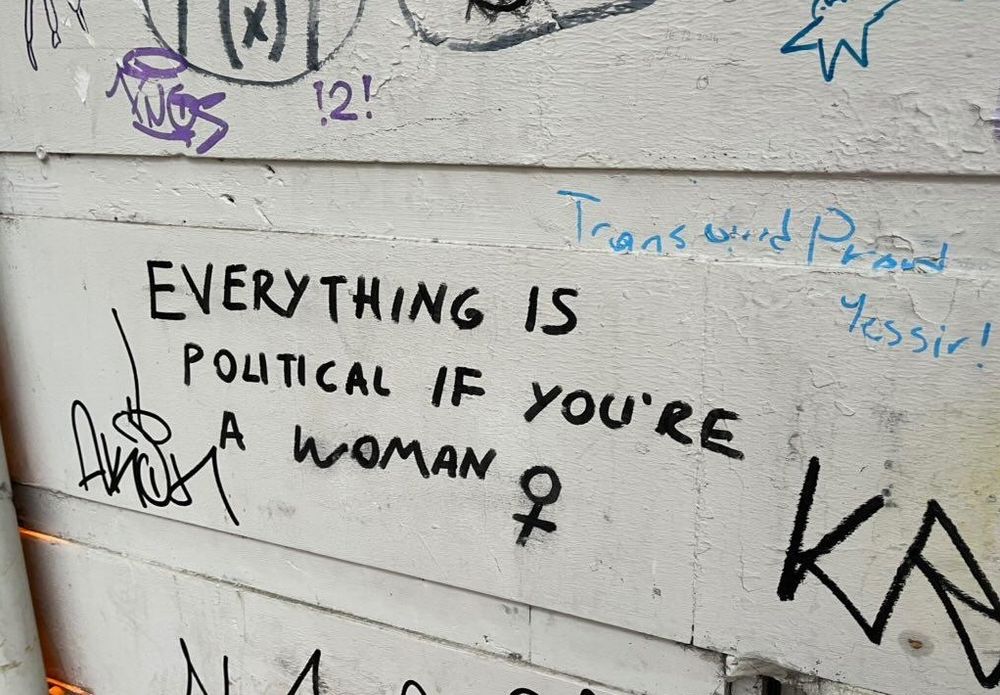 (x)
!2!
Trans and Proud
Yessir!
EVERYTHING IS
POLITICAL IF YOU'RE
A WOMAN ♀